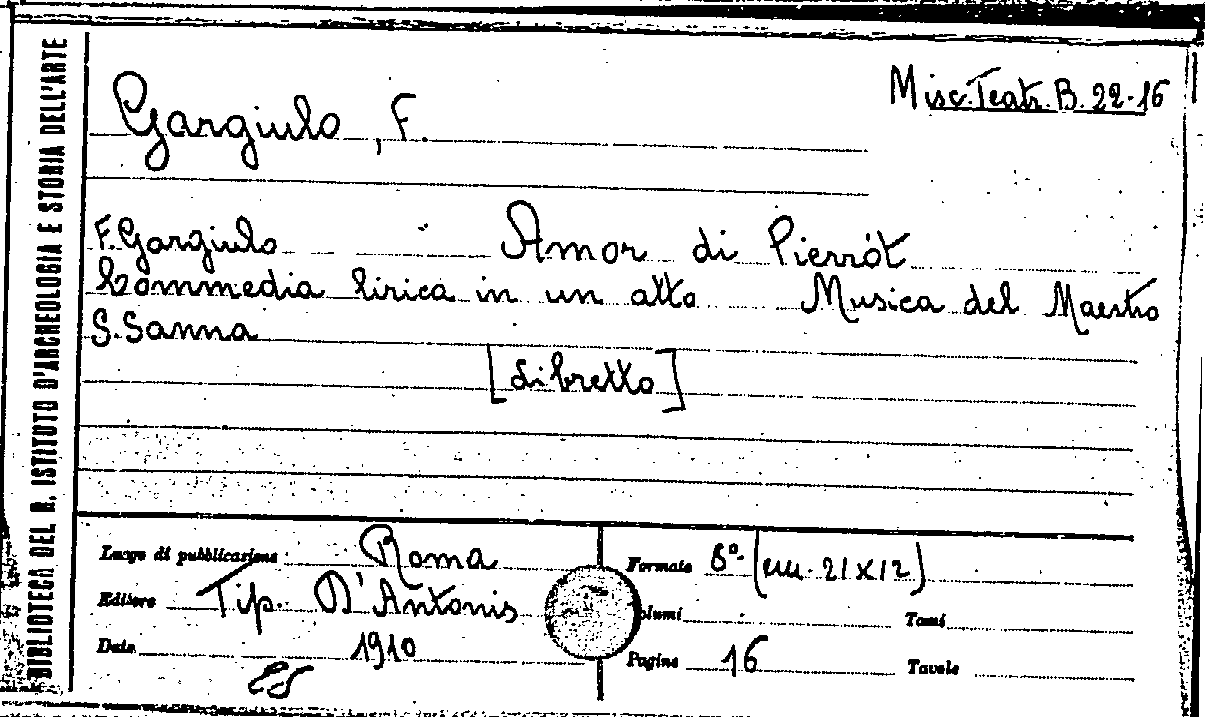 BIBLIOTECA DEL R. ISTITUTO D'ARCHEOLOGIA E STORIA DELL'ARTE
Misc. Teatr. B. 22-16
Gargiulo, F.
F. Gargiulo Amor di Pierrót
Commedia lirica in un atto Musica del Maestro
S. Sanna
[Libretto]
Luogo di pubblicazione Roma
Editore Tip. D'Antonis
Data 1910
Formato 8º. (cm. 21x12)
Volumi Tomi
Pagine 16 Tavole